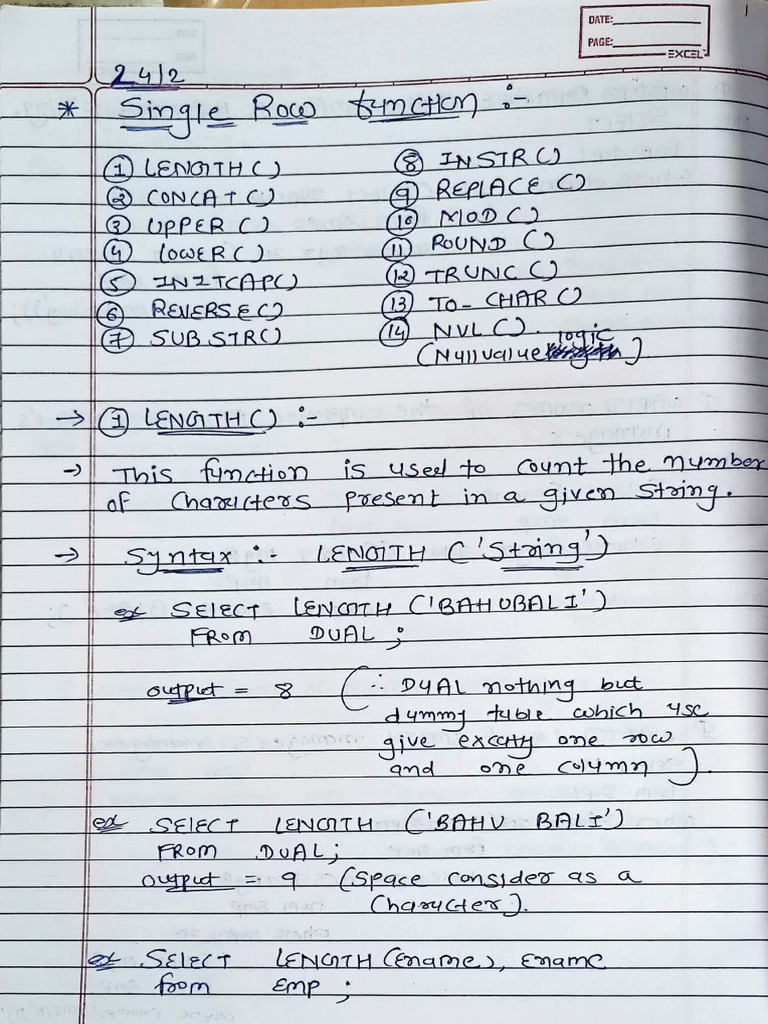 DATE:
PAGE:
EXCEL
24/2
* Single Row function :-
① LENGTH ()
② CONCAT ()
③ UPPER ()
④ LOWER ()
⑤ INITCAP()
⑥ REVERSE()
⑦ SUBSTR()
⑧ INSTR ()
⑨ REPLACE ()
⑩ MOD ()
⑪ ROUND ()
⑫ TRUNC ()
⑬ TO-CHAR ()
⑭ NVL ().
(Null value logic)
→ ① LENGTH () :-
→ This function is used to count the number
of characters present in a given string.
→ Syntax :- LENGTH ('String')
ex SELECT LENGTH ('BAHUBALI')
FROM DUAL ;
output = 8 (∴ DUAL nothing but
dummy table which use
give exactly one row
and one column).
ex SELECT LENGTH ('BAHU BALI')
FROM DUAL;
output = 9 (Space consider as a
Character).
ex SELECT LENGTH (Ename), Ename
from Emp ;